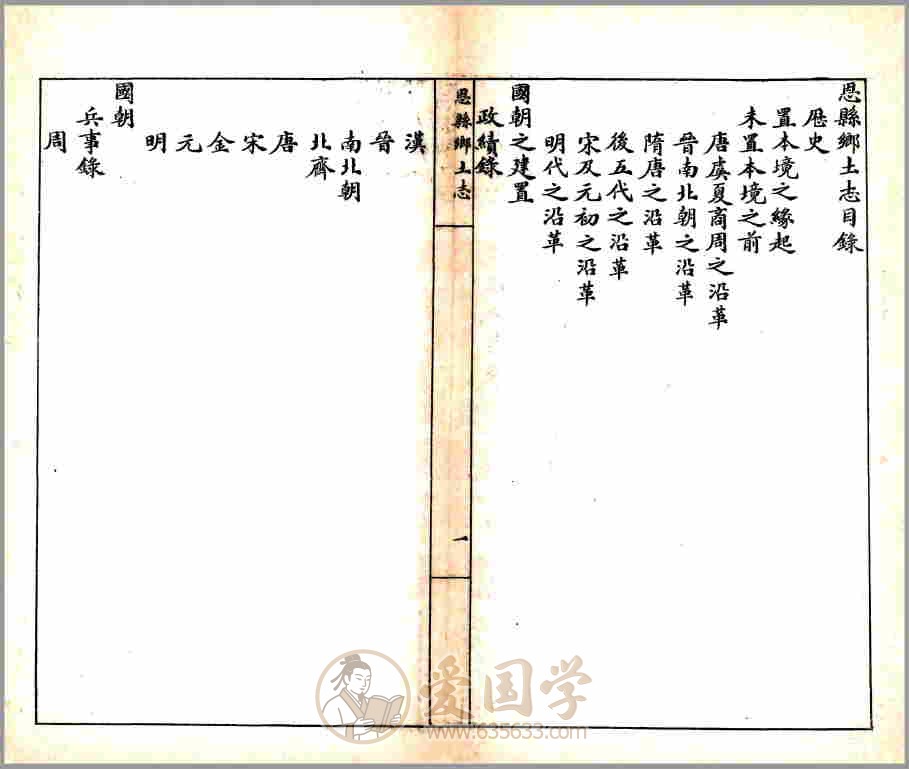 恩縣鄉土志目錄
歷史
置本境之緣起
未置本境之前
唐虞夏商周之沿革
晉南北朝之沿革
隋唐之沿革
後五代之沿革
宋及元初之沿革
明代之沿革
國朝之建置
政績錄
恩縣鄉土志
一
漢
晉
南北朝
北齊
唐
宋
金
元
明
國朝
兵事錄
周
爱国学
www.635633.com